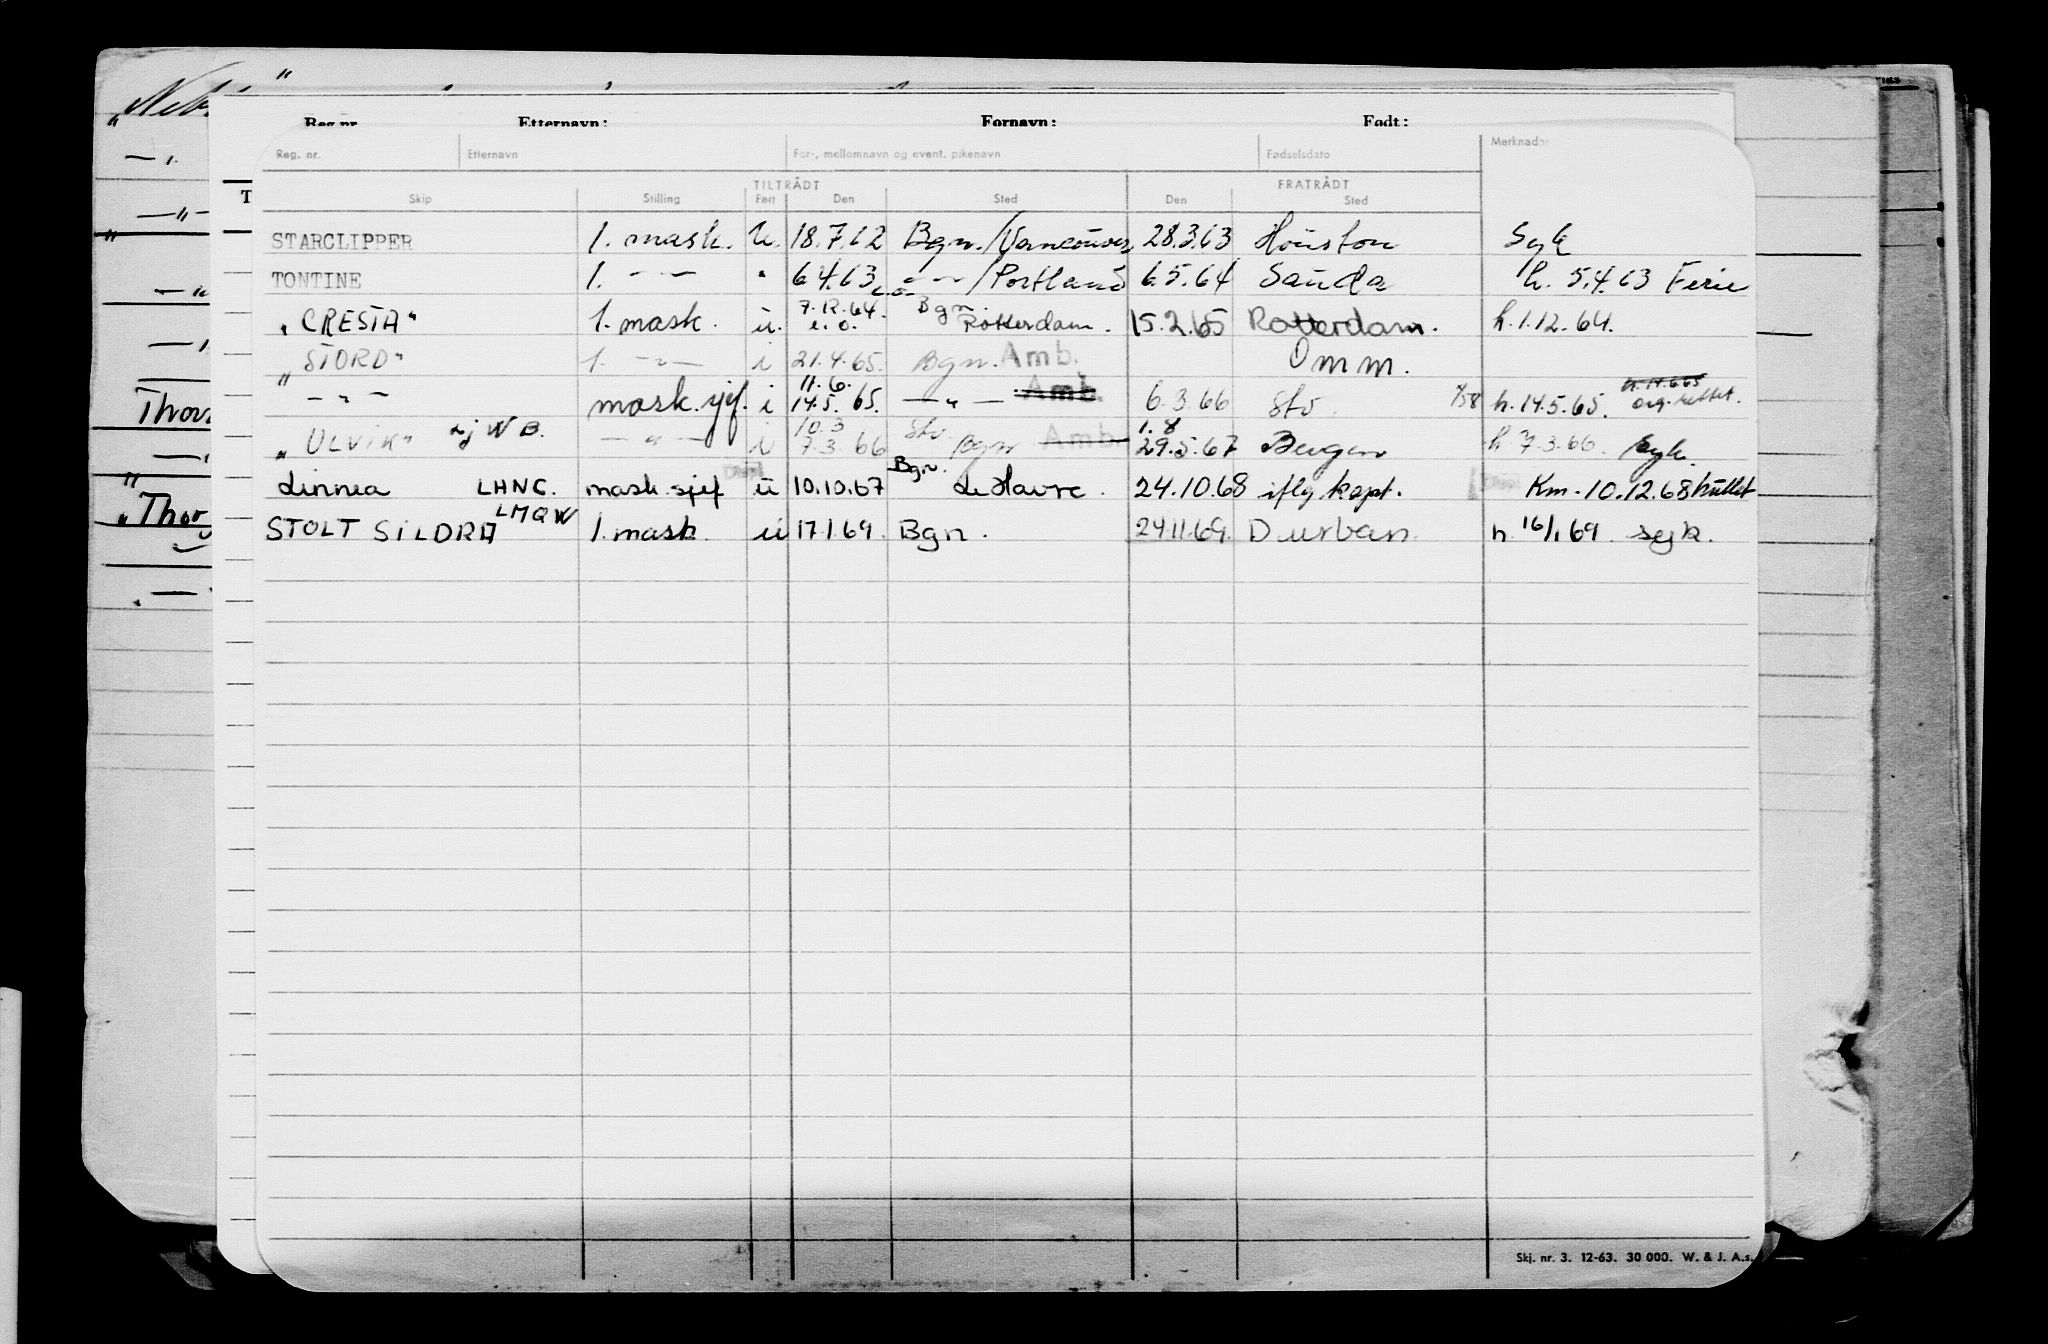 Reg. nr. Etternavn: Fornavn: Født:
Reg. nr. Etternavn For-, mellomnavn og event. pikenavn Fødselsdato Merknader
TILTRÅDT FRATRÅDT
Skip Stilling Fart Den Sted Den Sted
STARCLIPPER 1. mask. U. 18.7.62 Bgn./Vancouver 28.3.63 Houston Syk
TONTINE 1. — " — " 6.4.63 — " — /Portland 6.5.64 Sauda h. 5.4.63 Ferie
7.12.64. Bgn.
"CRESTA" 1. mask. u. e.o. Rotterdam. 15.2.65 Rotterdam. h.1.12.64.
"STORD" 1. — " — i 21.4.65. Bgn. Amb. Omm.
11.6.
— " — mask.sjef. i 14.5.65. — " — Amb. 6.3.66 Sto. h.14.5.65.
10.3 Sto. 1.8
"ULVIK" LJWB. — " — i 7.3.66 Bgn Amb. 29.5.67 Bergen h 7.3.66 syk.
Bgn.
Linnea LHNC. mask.sjef ü 10.10.67 Le Havre. 24.10.68 iflg kapt. Km. 10.12.68
LMQW
STOLT SILDRA 1. mask. ü 17.1.69. Bgn. 24.11.69. Durban. h. 16/1.69. syk.
Thor
Thor
Skj. nr. 3. 12-63. 30 000. W. & J. A.s.